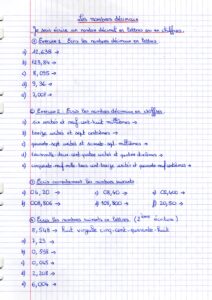 Les nombres décimaux
Je sais écrire un nombre décimal en lettres ou en chiffres.
① Exercice 1 : Écris les nombres décimaux en lettres
a) 12,638 →
b) 623,84 →
c) 8,095 →
d) 9,36 →
e) 2,007 →
② Exercice 2 : Écris les nombres décimaux en chiffres.
six unités et neuf cent huit millièmes →
treize unités et sept centièmes →
quarante sept unités et soixante sept millièmes →
et quatre dixièmes →
cinquante neuf mille trois cent treize unités et quarante neuf centièmes →
③ Écris correctement les nombres suivants
a) 04,20 → c) 08,40 → e) 05,400 →
b) 008,806 → d) 109,800 → f) 20,50 →
④ Écris les nombres suivants en lettres. (2ème écriture)
8,548 → huit virgule cinq-cent-quarante-huit
a) 7,23 →
b) 0,558 →
c) 0,045 →
d) 2,208 →
e) 6,004 →